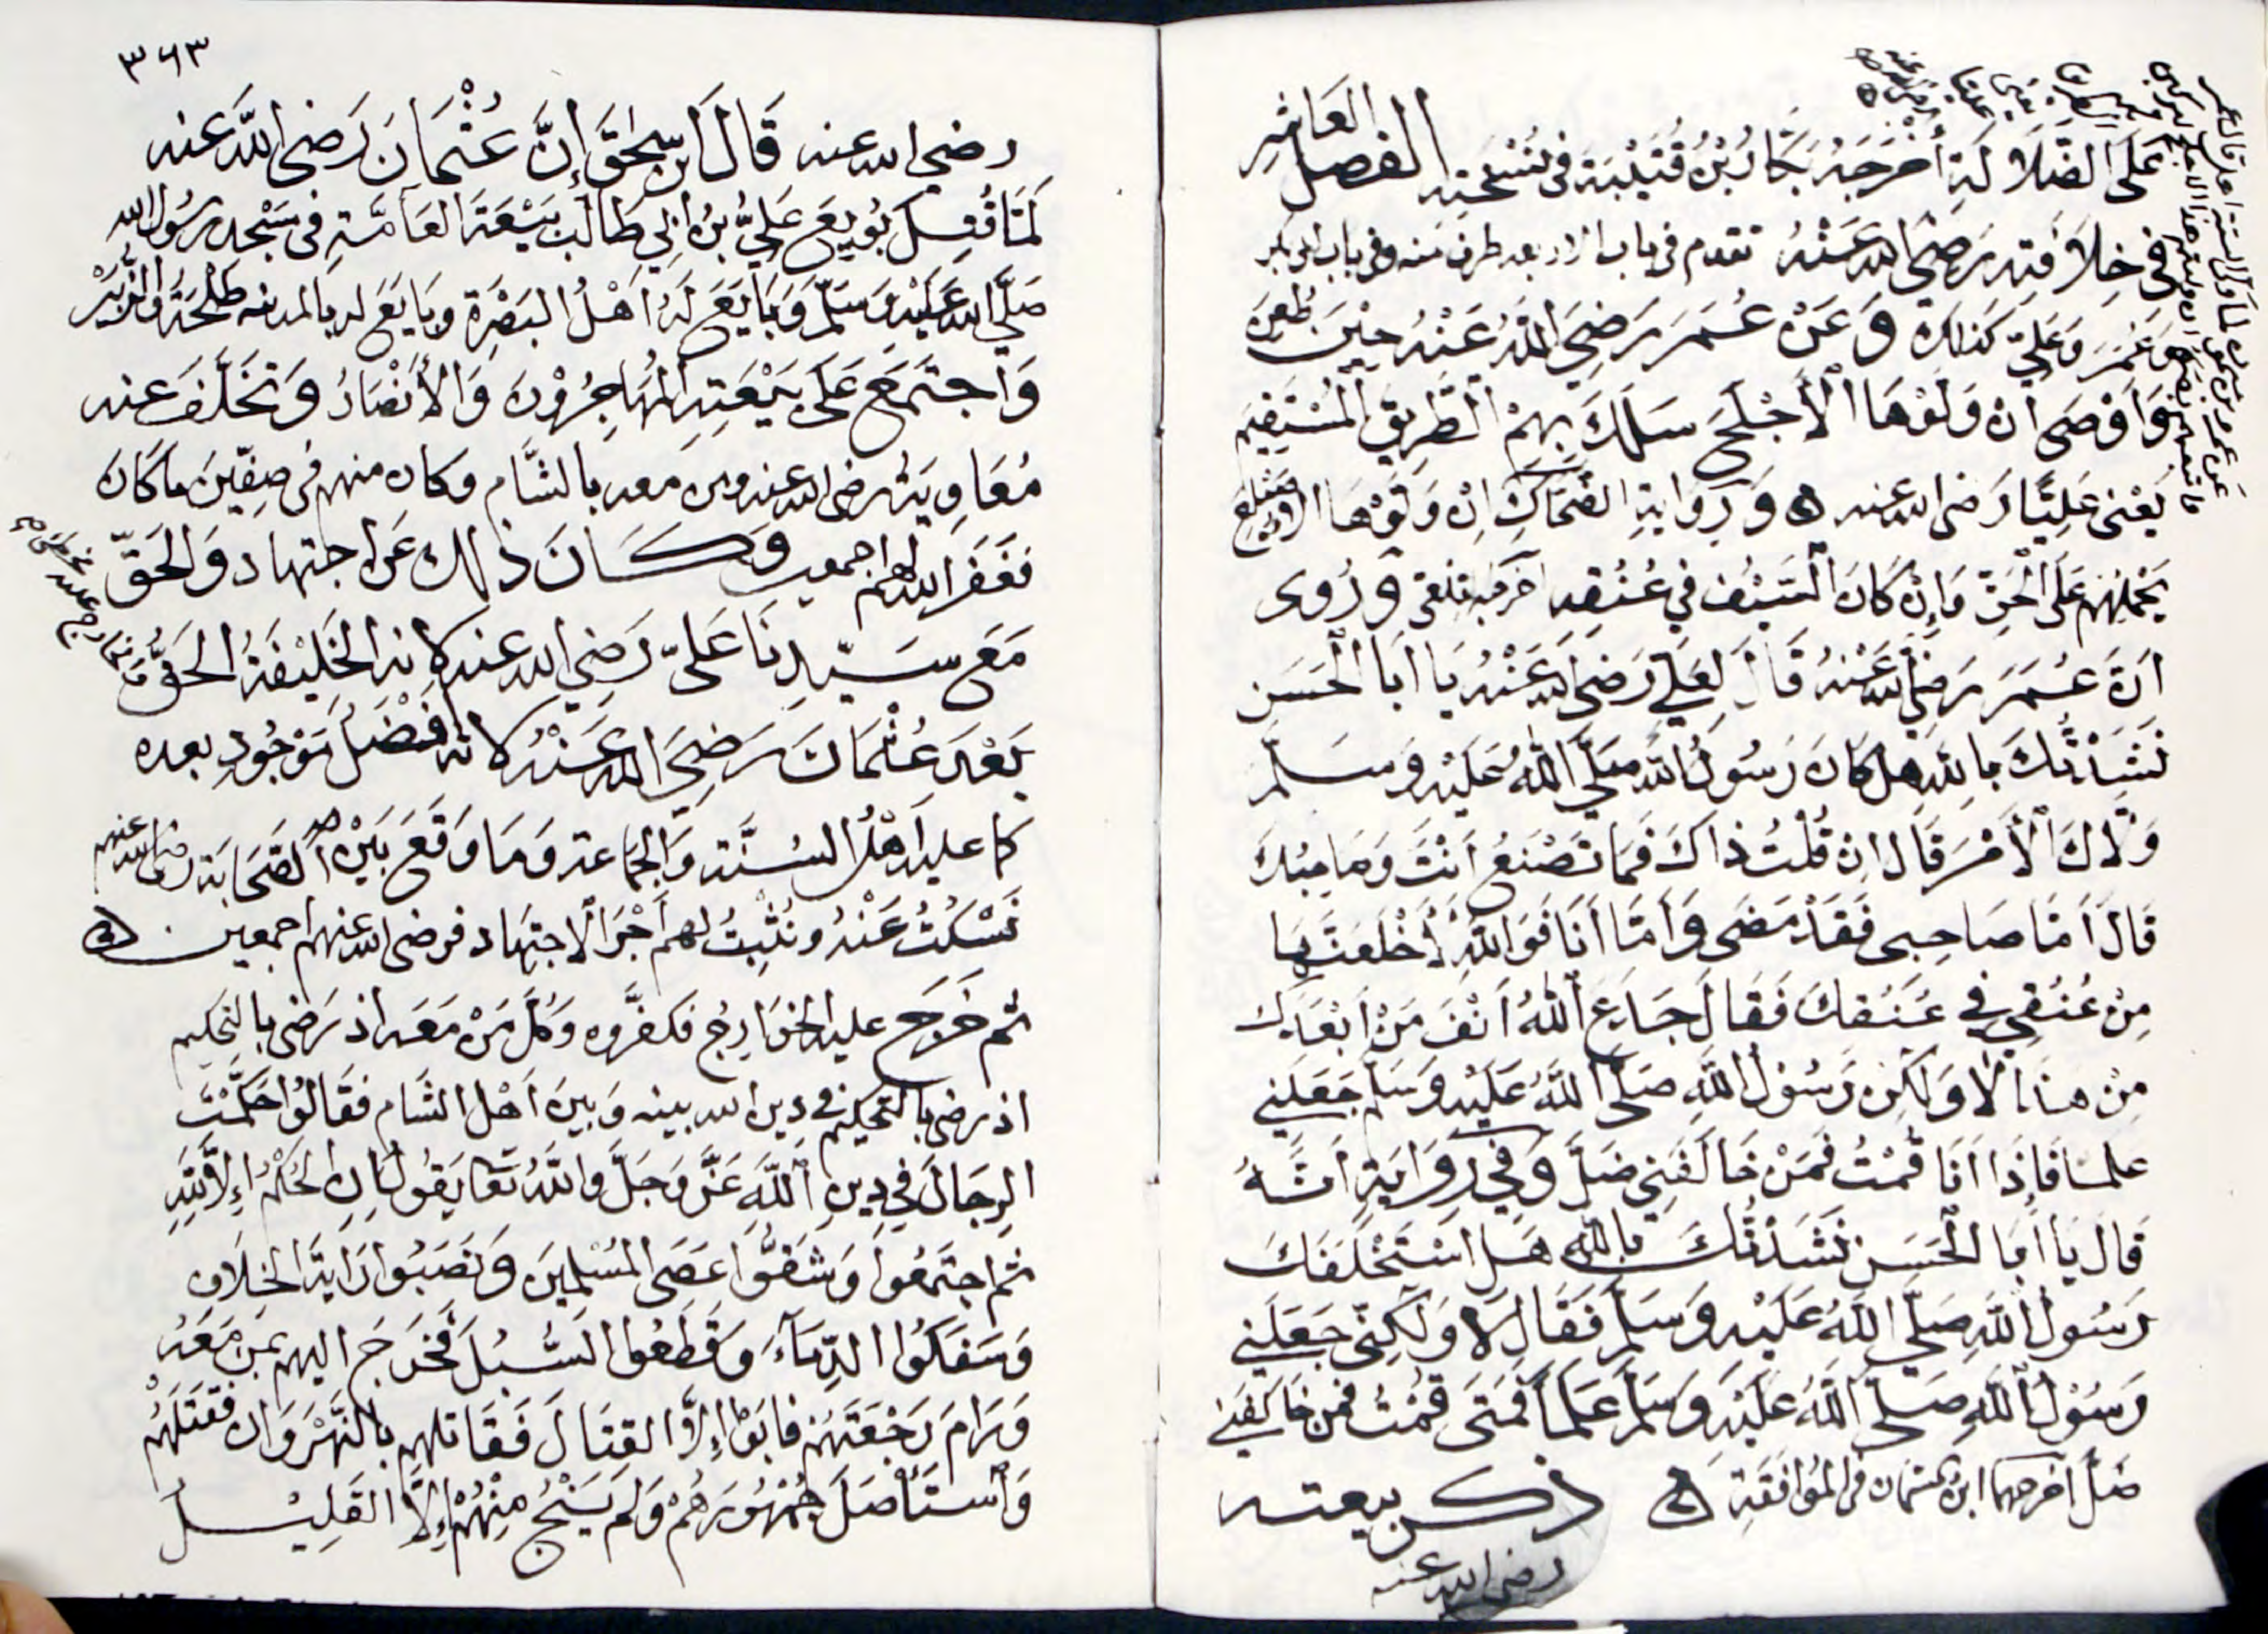 على الضلالة أخرجه بكار بن قتيبة في نسخته الفصل العاشر
في خلافته رضي الله عنه تقدم في باب الاربعه طرف منه وفي باب ابي بكر
وعمر وعلي كذلك وعن عمر رضي الله عنه حين طعن
وأوصى ان ولوها الأجلح سلك بهم الطريق المستقيم
يعني عليًا رضي الله عنه ورواية الضحاك ان ولوها الاصيلع
يحملهم على الحق وإن كان السيف في عنقه وروى
ان عمر رضي الله عنه قال لعلي رضي الله عنه يا ابا الحسن
نشدتك بالله هل كان رسول الله صلى الله عليه وسلم
ولاك الأمر قال ان قلت ذاك فما تصنع انت وصاحبك
قال أما صاحبي فقد مضى وأما أنا فوالله لأخلعنها
من عنقي في عنقك فقال جدع الله انف من ابعدك
من هذا لا ولكن رسول الله صلى الله عليه وسلم جعلني
علما فإذا انا قمت فمن خالفني ضل وفي رواية انه
قال يا أبا الحسن نشدتك بالله هل استخلفك
رسول الله صلى الله عليه وسلم فقال لا ولكني جعلني
رسول الله صلى الله عليه وسلم علما فمتى قمت فمن خالفني
ضل أخرجهما ابن السمان في الموافقة ذكر بيعته
رضي الله عنه
٣٦٣
رضي الله عنه قال ابن إسحاق إن عثمان رضي الله عنه
لما قتل بويع علي بن أبي طالب بيعة العامة في مسجد رسول الله
صلى الله عليه وسلم وبايع له اهل البصرة وبايع له بالمدينه طلحة والزبير
واجتمع على بيعته المهاجرون والأنصار وتخلف عنه
معاوية رضي الله عنه ومن معه بالشام وكان منهم في صفين ما كان
فغفر الله لهم اجمعين وكان ذلك عن اجتهاد والحق
مع سيدنا علي رضي الله عنه كانه الخليفة الحق
بعد عثمان رضي الله عنه كانه أفضل موجود بعده
كما عليه اهل السنة والجماعة وما وقع بين الصحابة رضي الله عنهم
نسكت عنه ونثبت لهم أجر الاجتهاد فرضي الله عنهم اجمعين
ثم خرج عليه الخوارج فكفروه وكل من معه اذ رضي بالتحكيم
اذ رضي بالتحكيم في دين الله بينه وبين أهل الشام فقالوا حكمت
الرجال في دين الله عز وجل والله تعالى يقول إن الحكم إلا لله
ثم اجتمعوا وشقوا عصى المسلمين ونصبوا راية الخلاف
وسفكوا الدماء وقطعوا السبل فخرج اليهم بمن معه
ورام رجعتهم فابوا إلا القتال فقاتلهم بالنهروان فقتلهم
واستأصل جمهورهم ولم ينج منهم إلا القليل